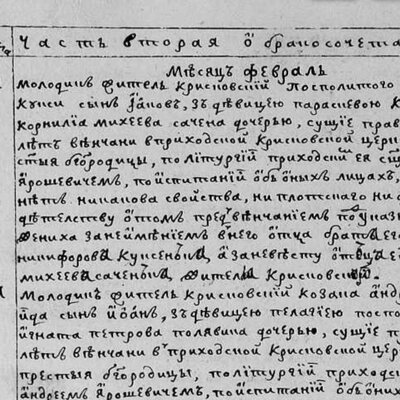 Часть вторая о бракосочета
Мѣсяцъ Февраль
Молодикъ житель Крисковский Посполитого
сын Іанов, зъ дѣвицею Параскевою
Корнилїа Михеева Сачена дочерью, сущїе прав
лѣтъ вѣнчани в приходской Крисковской церк
стыя бгородицы, по литургий приходски ея
Ярошевичем, по испитаний обоюных лицахъ,
нѣтъ никакова свойства, ни плотскаго ни
дѣтелству о том предъ вѣнчанием по указ
жениха за неимѣнием в него отца братъ его
никифоровъ а за невѣсту отецъ е
михеевъ саченовъ жители Крисковский.
Молодикъ житель Крисковский Козака
сынъ Іоанъ, зъ дѣвицею Пелагїею посп
Игната Петрова дочерью, сущїе п
лѣтъ вѣнчани в приходской Крисковской цер
престыя бгородицы, по литургий приходс
андреем Ярошевичем, по испитаний обоюных